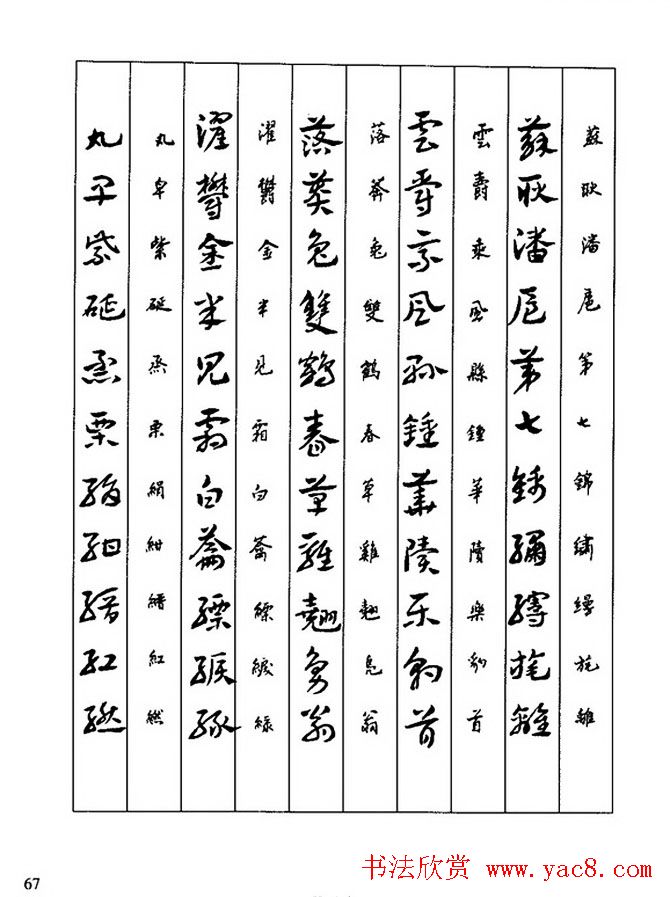 蘇耿潘扈第七錦繡縵旄離
蘇耿潘扈第七錦繡縵旄離
雲爵乘風縣鍾華隫樂豹首
雲爵乘風縣鍾華隫樂豹首
落莽兔雙鶴春草雞翹鳧翁
落莽兔雙鶴春草雞翹鳧翁
濯鬱金半見霜白縹綟綠
濯鬱金半見霜白縹綟綠
丸皁紫硟烝栗絹紺縉紅繎
丸皁紫硟烝栗絹紺縉紅繎
67
书法欣赏 www.yac8.com